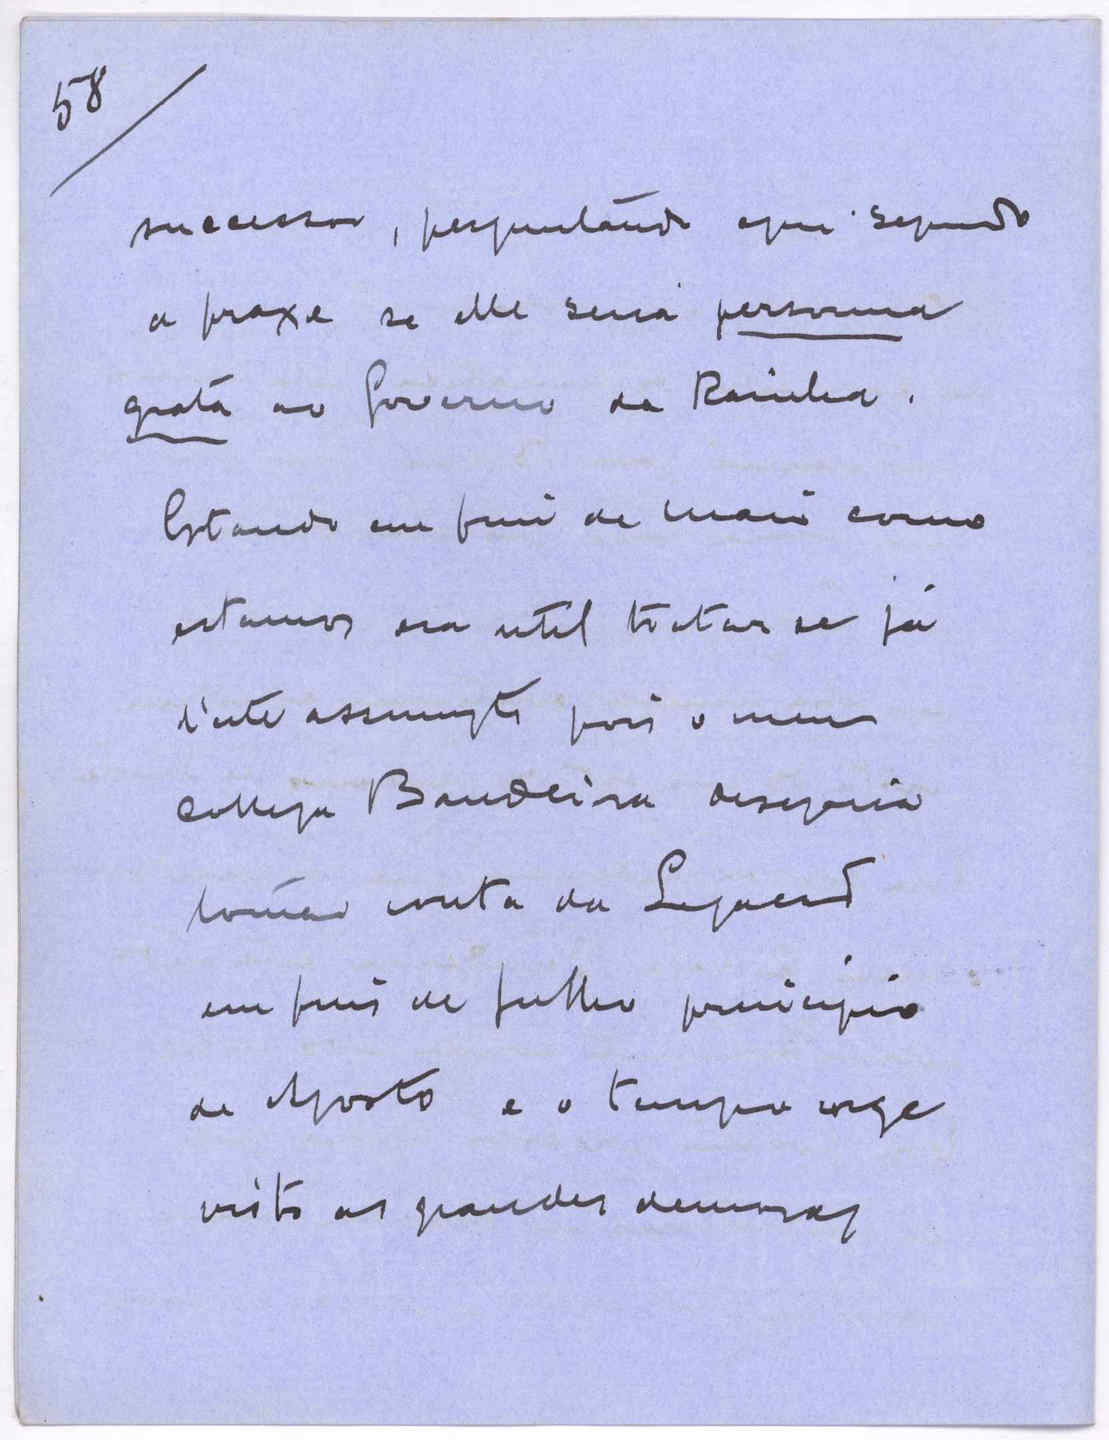 58
successor, perguntando aqui segundo
a praxe se elle seria persona
grata ao Governo da Rainha.
Estando em fim de maio como
estamos era util tratar se já
d'este assumpto pois o meu
collega Bandeira desejaria
tomar conta da Legação
em fins de Julho principio
de Agosto e o tempo urge
visto as grandes demoras